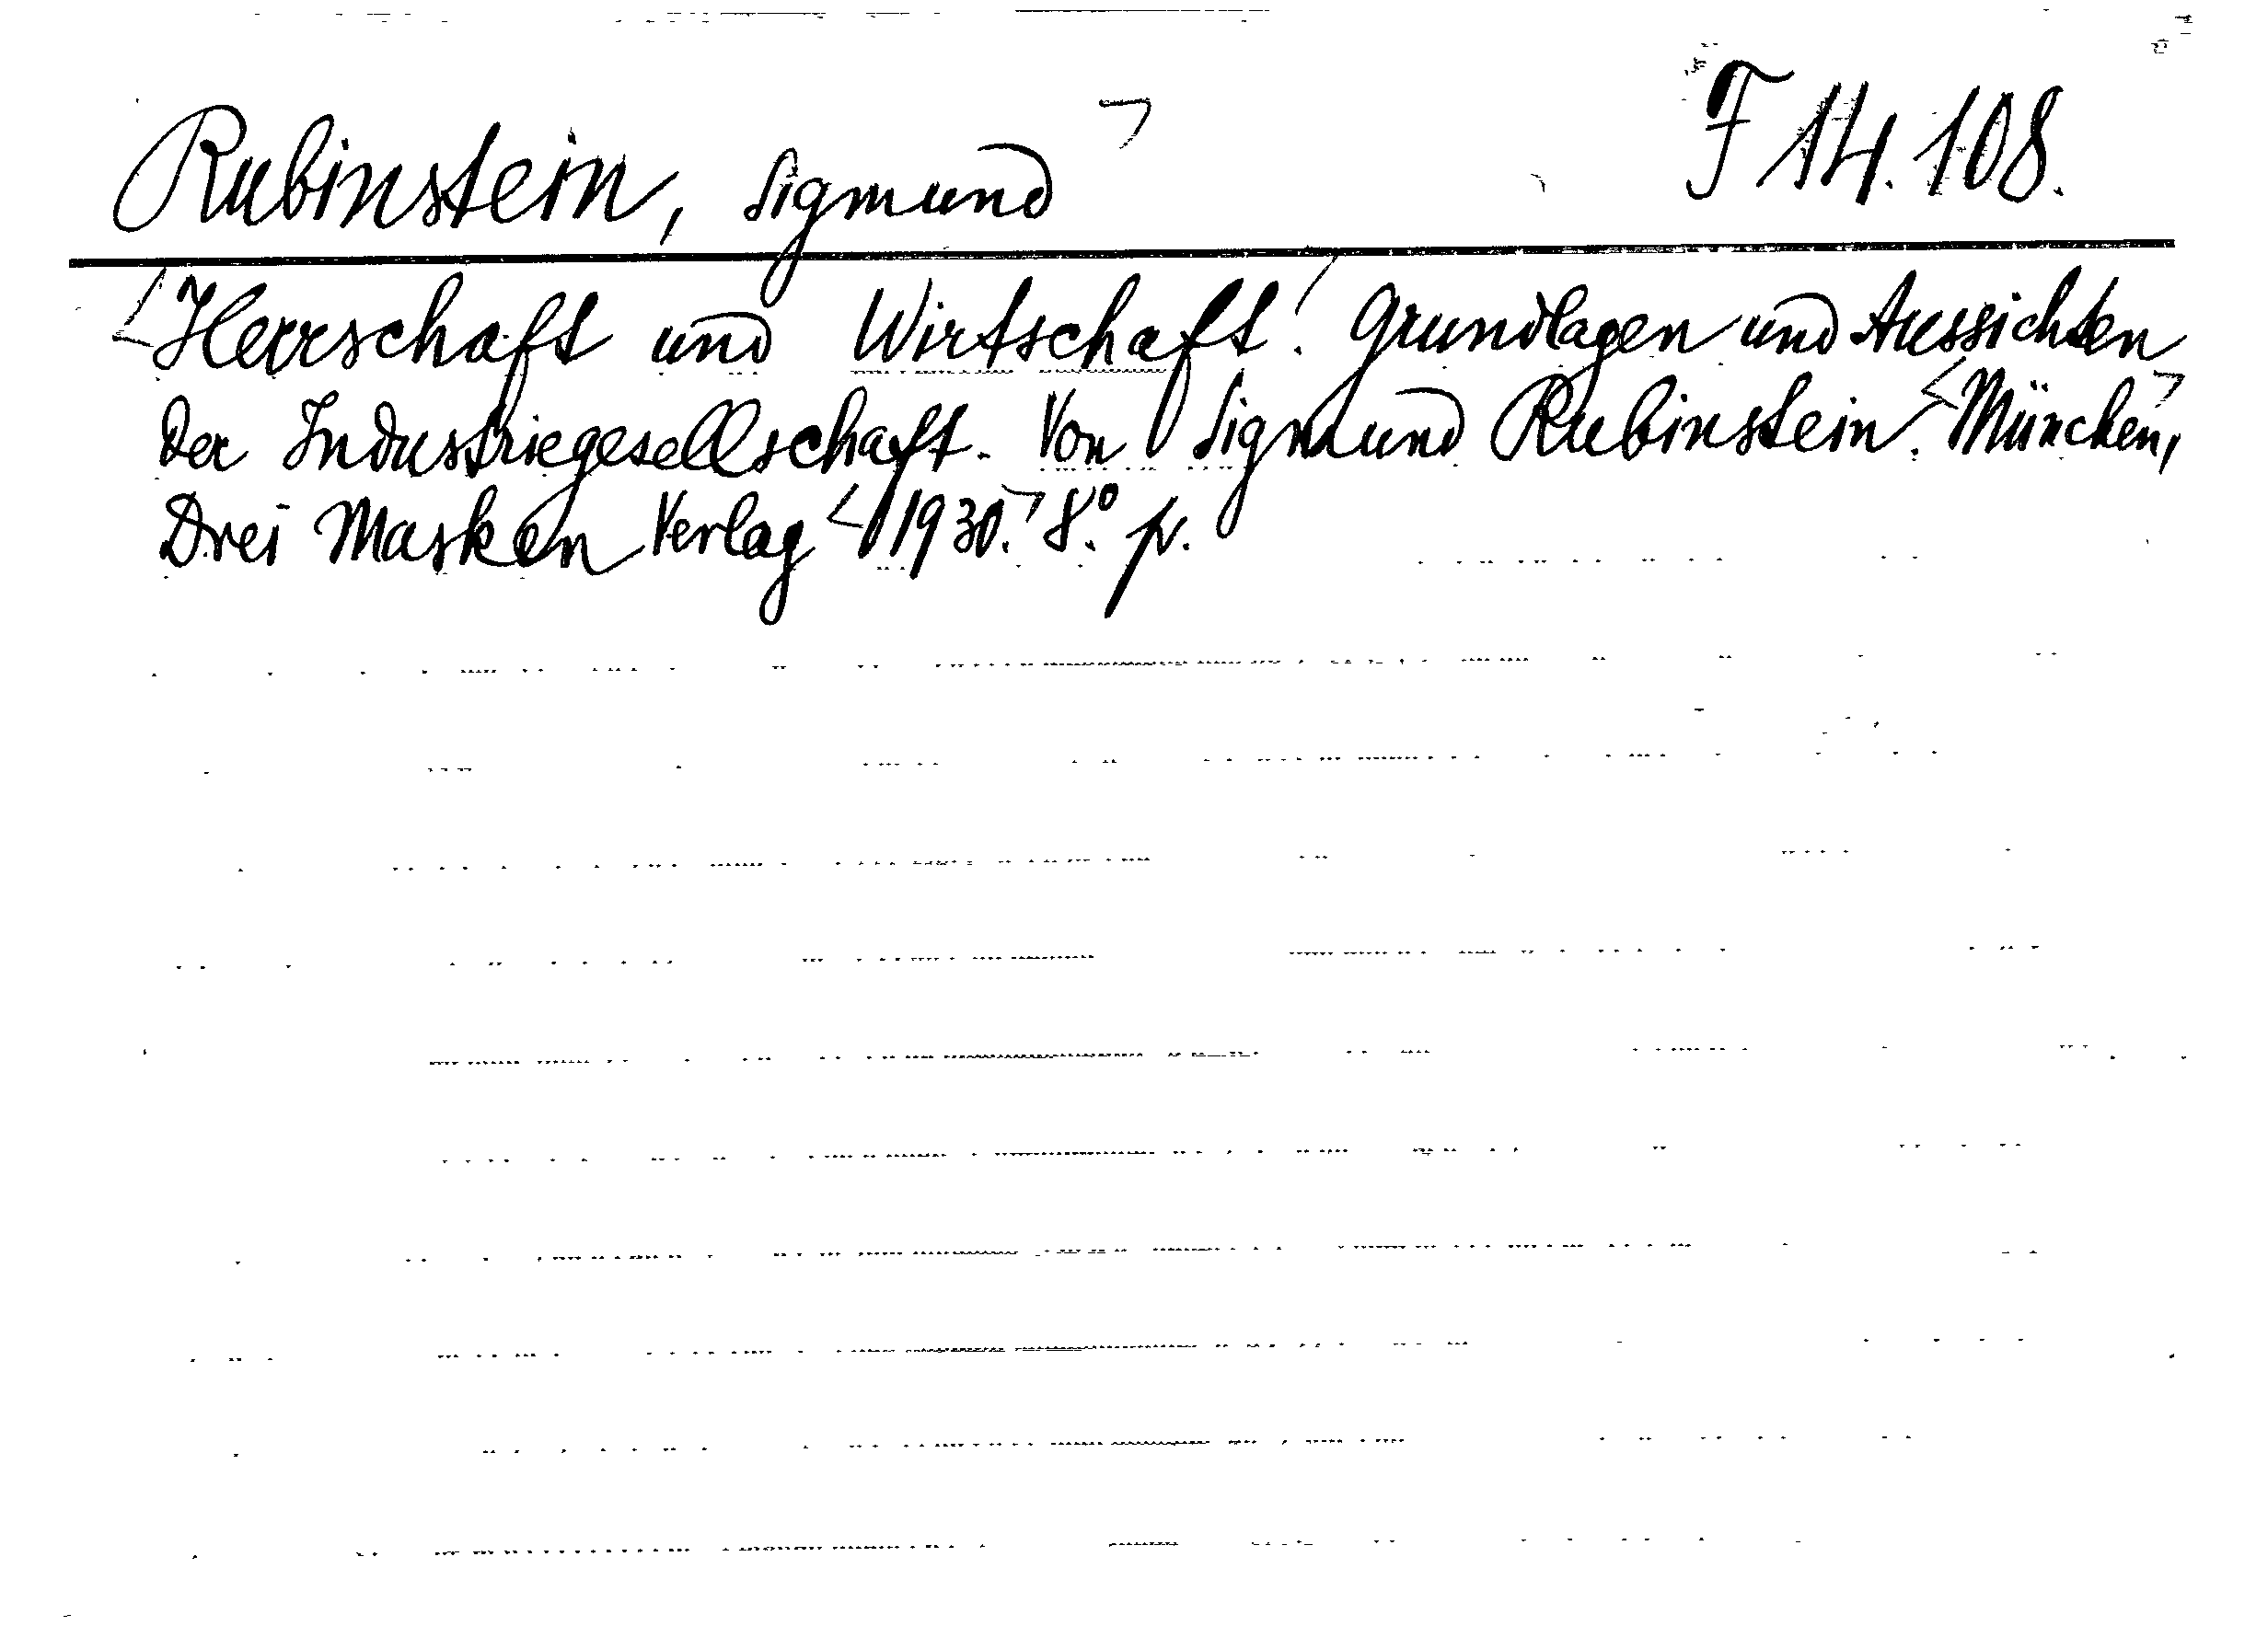 Rubinstein, Sigmund F 14.108.
Herrschaft und Wirtschaft. Grundlagen und Aussichten
der Industriegesellschaft. Von Sigmund Rubinstein. München,
Drei Masken Verlag 1930. 8°. pr.